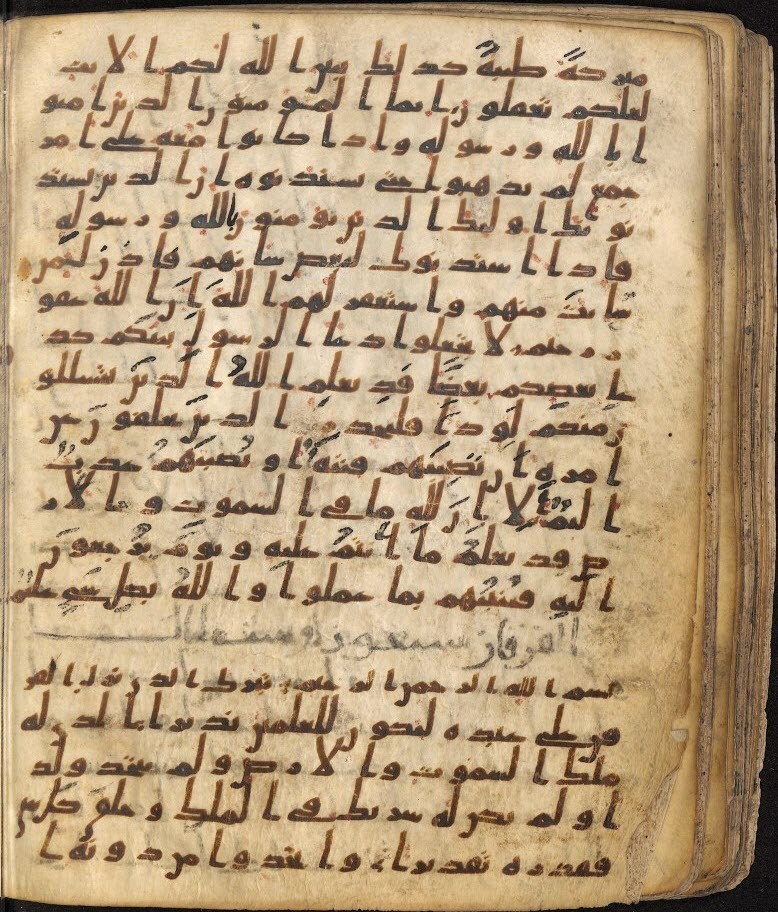 مبركة طيبة كذلك يبين الله لكم الايت
لعلكم تعقلون انما المومنون الذين امنو
ا بالله ورسوله واذا كانوا معه على امر
جمع لم يذهبوا حتى يستذنوه ان الذين يستذ
نونك اولئك الذين يومنون بالله ورسوله
فاذا استذنوك لبعض شانهم فاذن لمن
شئت منهم واستغفر لهم الله ان الله غفو
ر رحيم لا تجعلوا دعا الرسول بينكم كد
عا بعضكم بعضا قد يعلم الله الذين يتسللو
ن منكم لواذا فليحذر الذين يخلفون عن
امره ان تصيبهم فتنة او يصيبهم عذب
اليم الا ان لله ما في السموت والار
ض قد يعلم ما انتم عليه ويوم يرجعون
اليه فينبئهم بما عملوا والله بكل شي عليم
الفرقان سبعون وسبع ايات
بسم الله الرحمن الرحيم تبرك الذي نزل الفر
قن على عبده ليكون للعلمين نذيرا الذي له
ملك السموت والارض ولم يتخذ ولد
ا ولم يكن له شريك في الملك وخلق كل شي
فقدره تقديرا واتخذوا من دونه ا